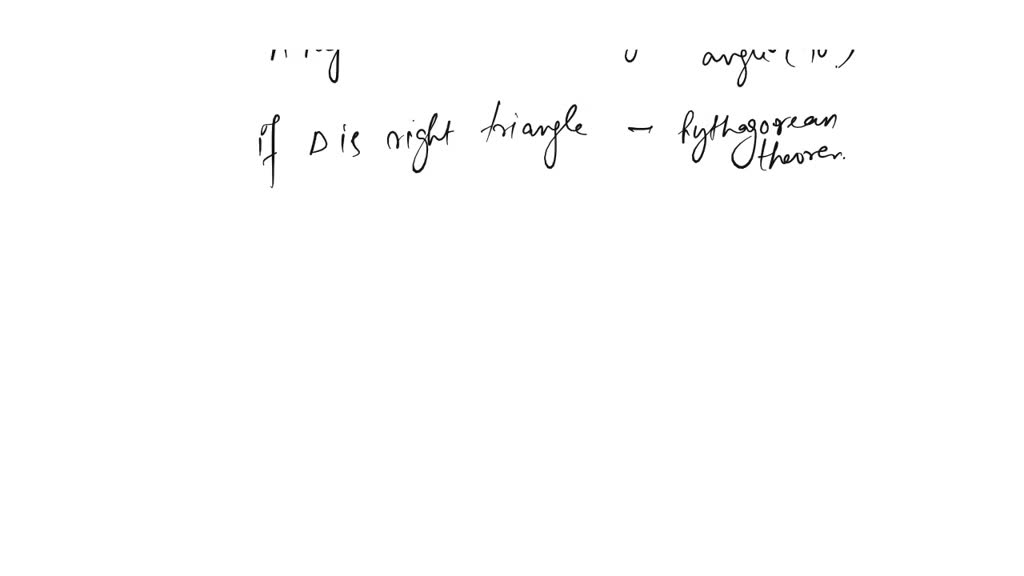 angle (90°)
if Δ is right triangle - Pythagorean
theorem.